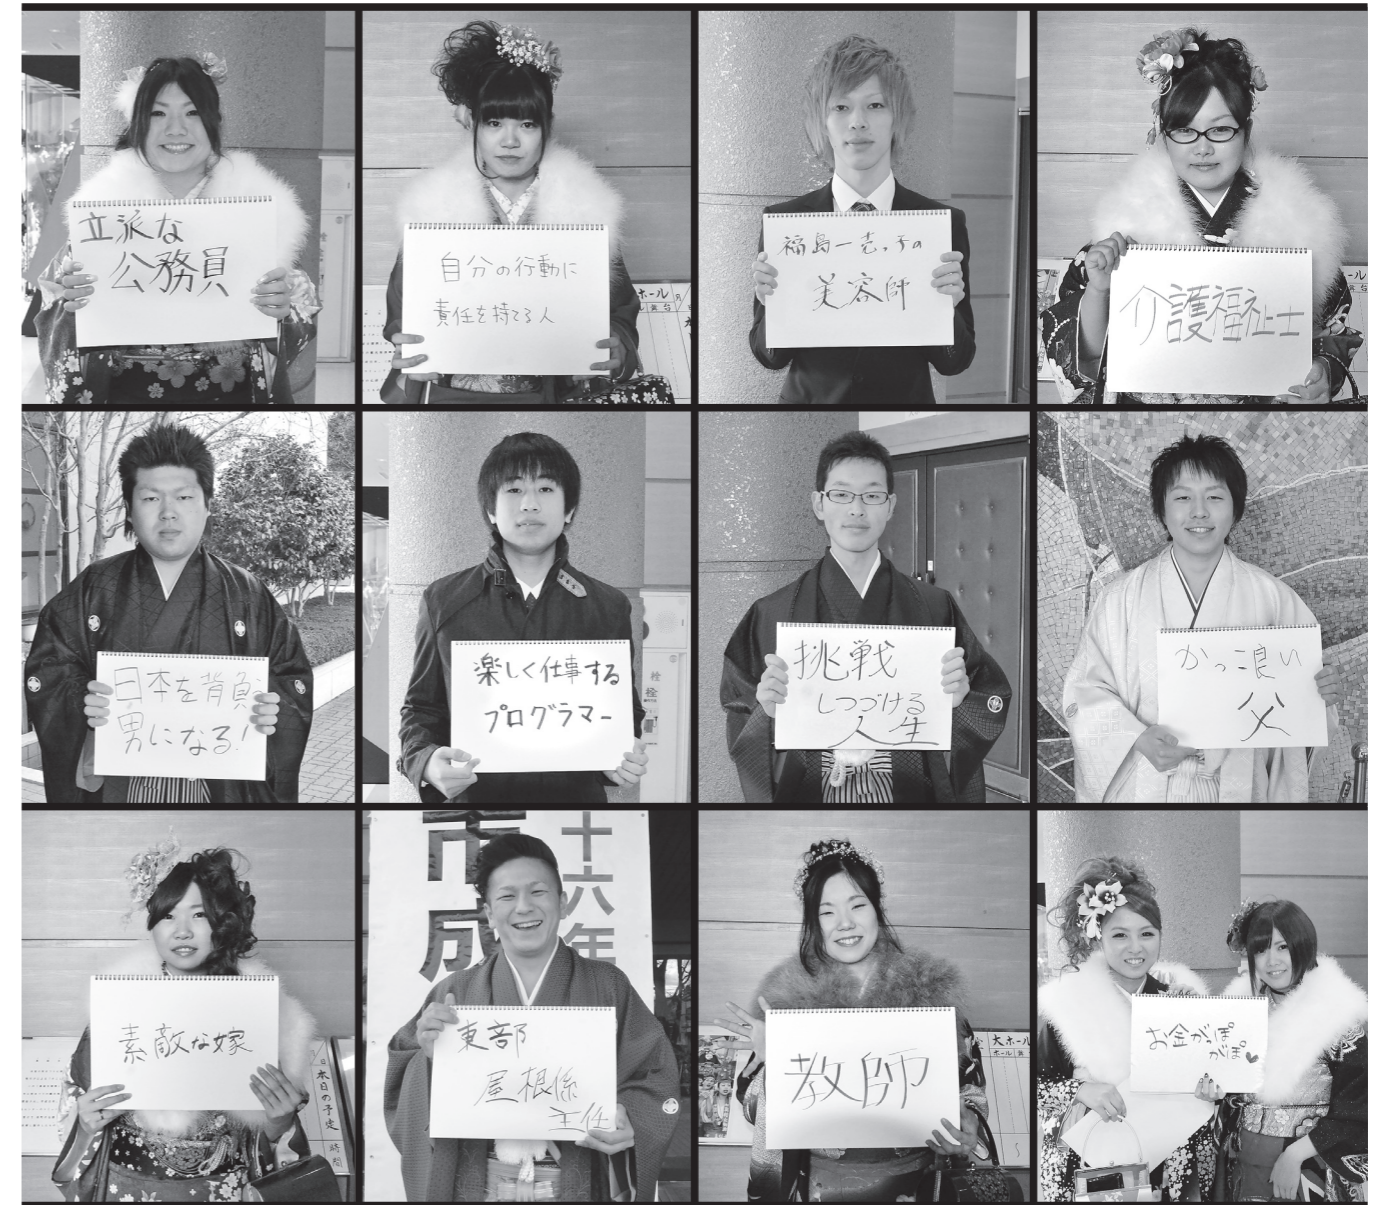 立派な
公務員
自分の行動に
責任を持てる人
福島一売れっ子の
美容師
介護福祉士
日本を背負う
男になる!
楽しく仕事する
プログラマー
栓
栓
挑戦
しつづける
人生
かっこ良い
父
素敵な嫁
本日の予定
時間
十六年
市成
東部
屋根係
主任
教師
大ホール
お金がっぽ
がぽ♥